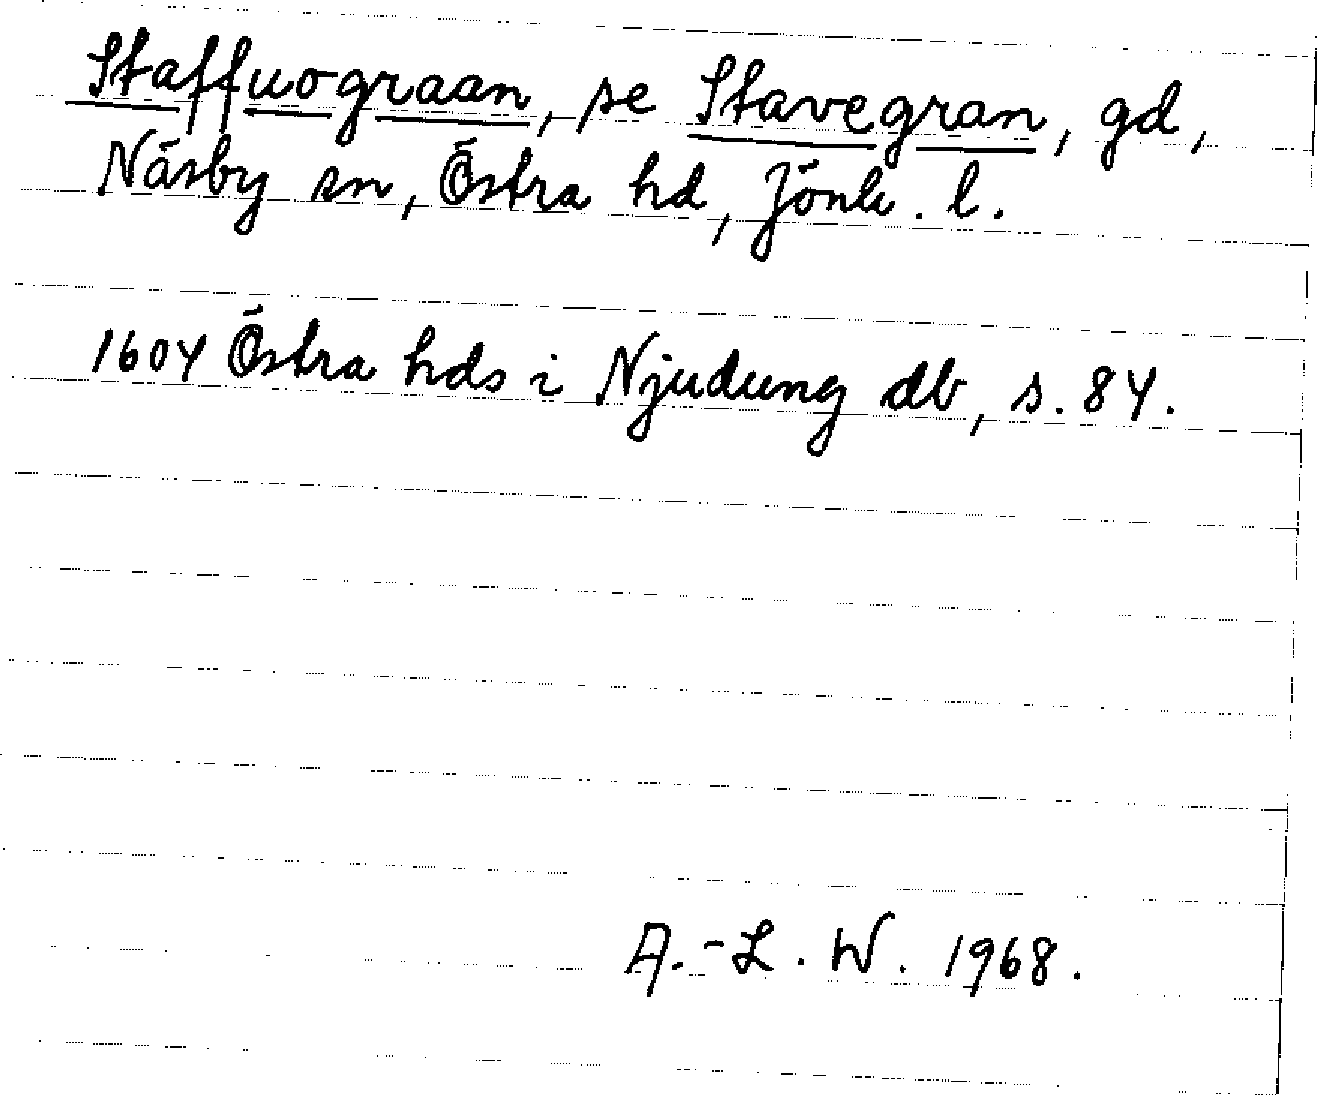 Staffuograan, se Stavegran, gd,
Näsby sn, Östra hd, Jönk. l.
1604 Östra hds i Njudung db, s. 84.
A.-L. W. 1968.